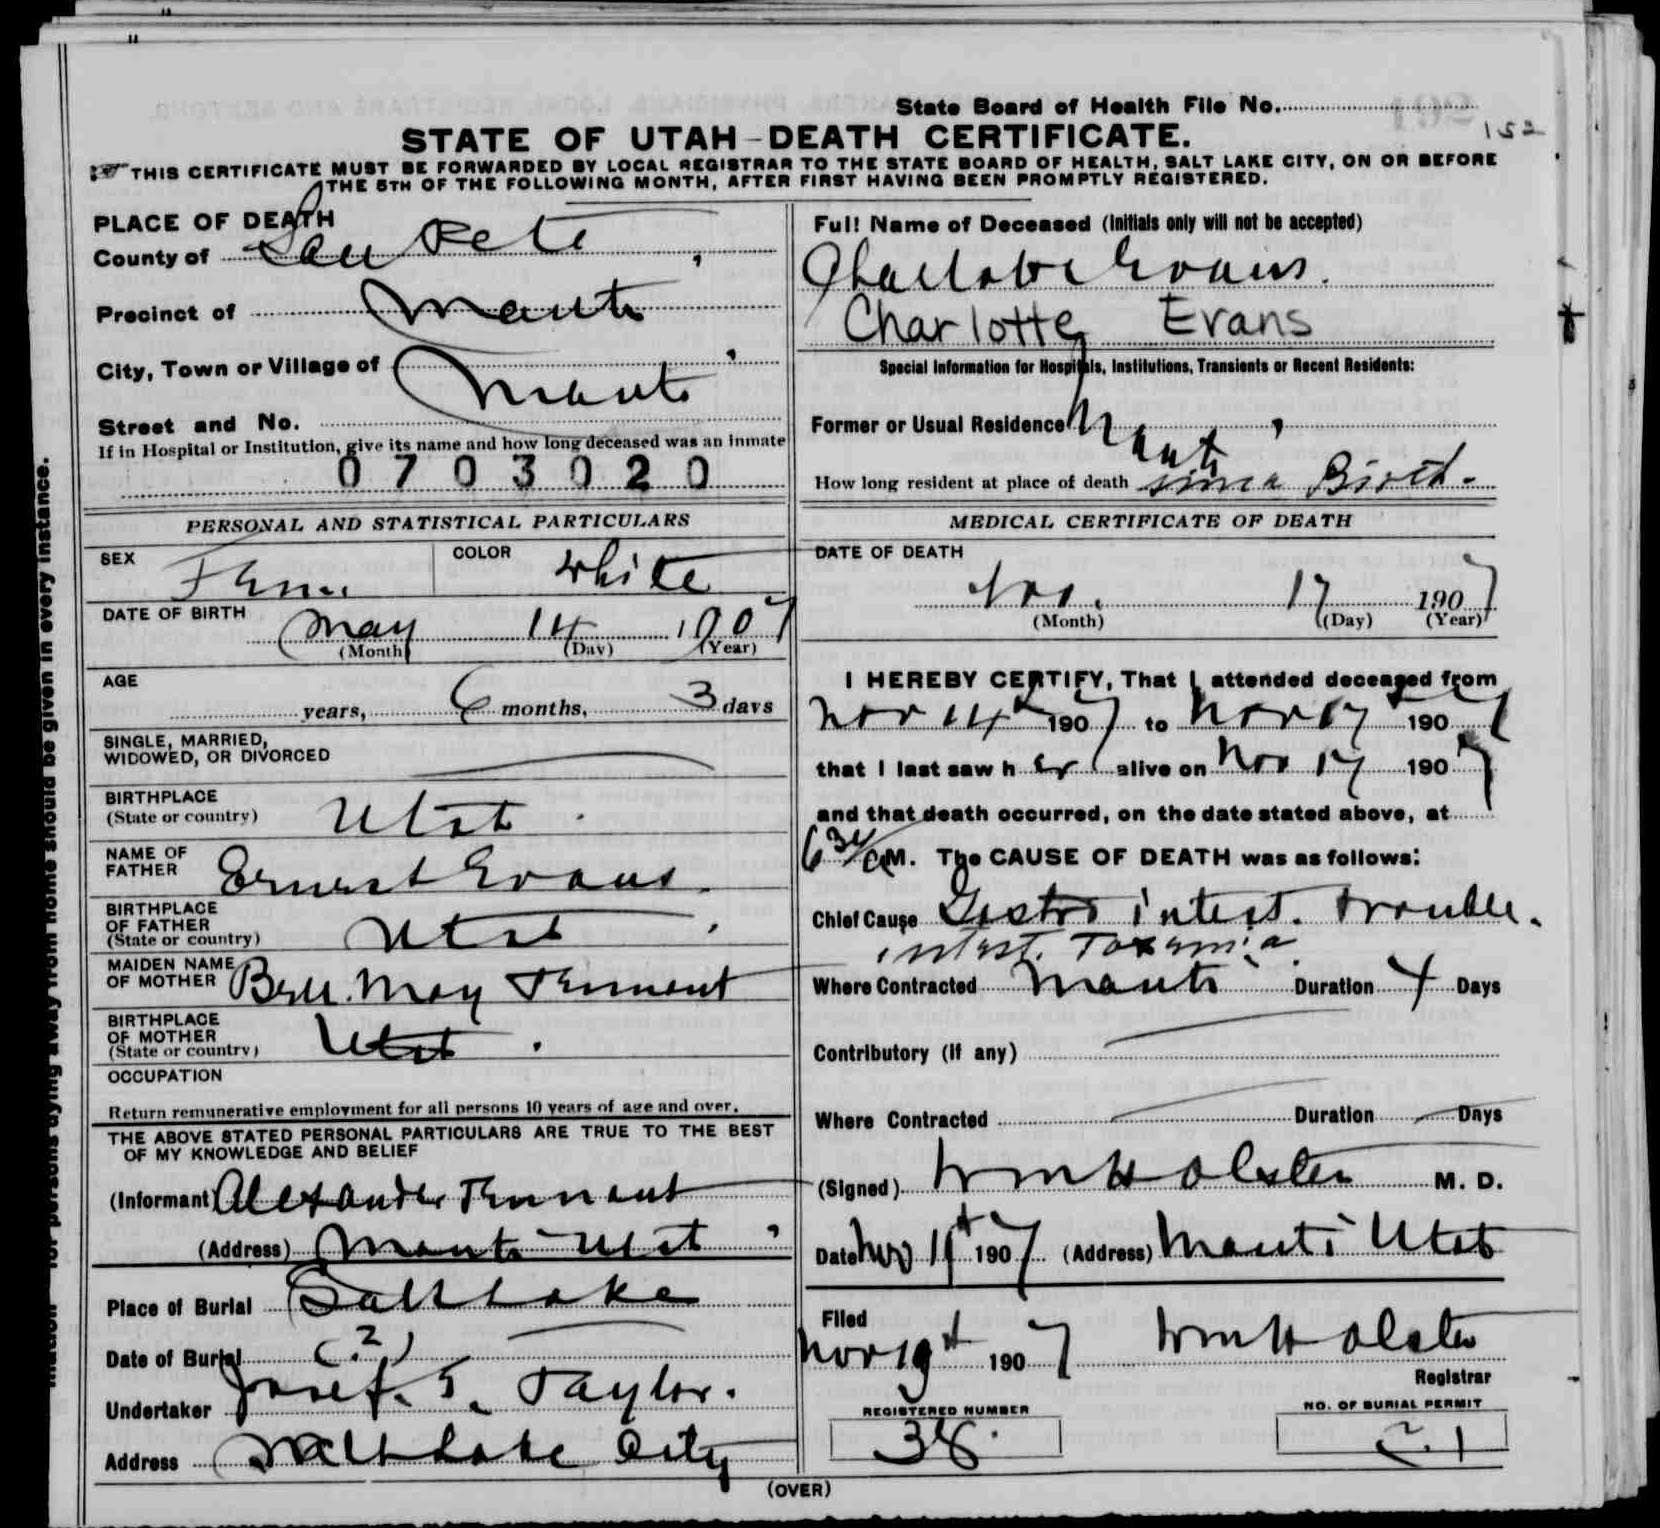 State Board of Health File No.
152
STATE OF UTAH-DEATH CERTIFICATE.
THIS CERTIFICATE MUST BE FORWARDED BY LOCAL REGISTRAR TO THE STATE BOARD OF HEALTH, SALT LAKE CITY, ON OR BEFORE
THE 5TH OF THE FOLLOWING MONTH, AFTER FIRST HAVING BEEN PROMPTLY REGISTERED.
PLACE OF DEATH
County of San Pete,
Precinct of Manti
City, Town or Village of Manti
Street and No.
If in Hospital or Institution, give its name and how long deceased was an inmate
0703020
PERSONAL AND STATISTICAL PARTICULARS
SEX Fem. COLOR White
DATE OF BIRTH May 14 1907
(Month) (Day) (Year)
AGE
years, 6 months, 3 days
SINGLE, MARRIED,
WIDOWED, OR DIVORCED
BIRTHPLACE
(State or country) Utah.
NAME OF
FATHER Ernest Evans.
BIRTHPLACE
OF FATHER
(State or country) Utah.
MAIDEN NAME
OF MOTHER May Tennant
BIRTHPLACE
OF MOTHER
(State or country) Utah.
OCCUPATION
Return remunerative employment for all persons 10 years of age and over.
THE ABOVE STATED PERSONAL PARTICULARS ARE TRUE TO THE BEST
OF MY KNOWLEDGE AND BELIEF
(Informant) Alexander Tennant
(Address) Manti Utah
Place of Burial Salt Lake
Date of Burial (?)
Undertaker Josef. E. Taylor.
Address Salt Lake City
Full Name of Deceased (Initials only will not be accepted)
Charlotte Evans.
Charlotte Evans
Special Information for Hospitals, Institutions, Transients or Recent Residents:
Former or Usual Residence Manti
How long resident at place of death since Birth.
MEDICAL CERTIFICATE OF DEATH
DATE OF DEATH
Nov. 17 1907
(Month) (Day) (Year)
I HEREBY CERTIFY, That I attended deceased from
Nov 14th 1907 to Nov 17th 1907
that I last saw her alive on Nov 17 1907
and that death occurred, on the date stated above, at
6 30/ a M. The CAUSE OF DEATH was as follows:
Chief Cause Gastro intest. trouble.
intest. Toxemia
Where Contracted Manti Duration 4 Days
Contributory (If any)
Where Contracted Duration Days
(Signed) Wm H Olsten M. D.
Date Nov 1907 (Address) Manti Utah
Filed
Nov 19th 1907 Wm H Olsten
Registrar
REGISTERED NUMBER
38.
NO. OF BURIAL PERMIT
21
(OVER)